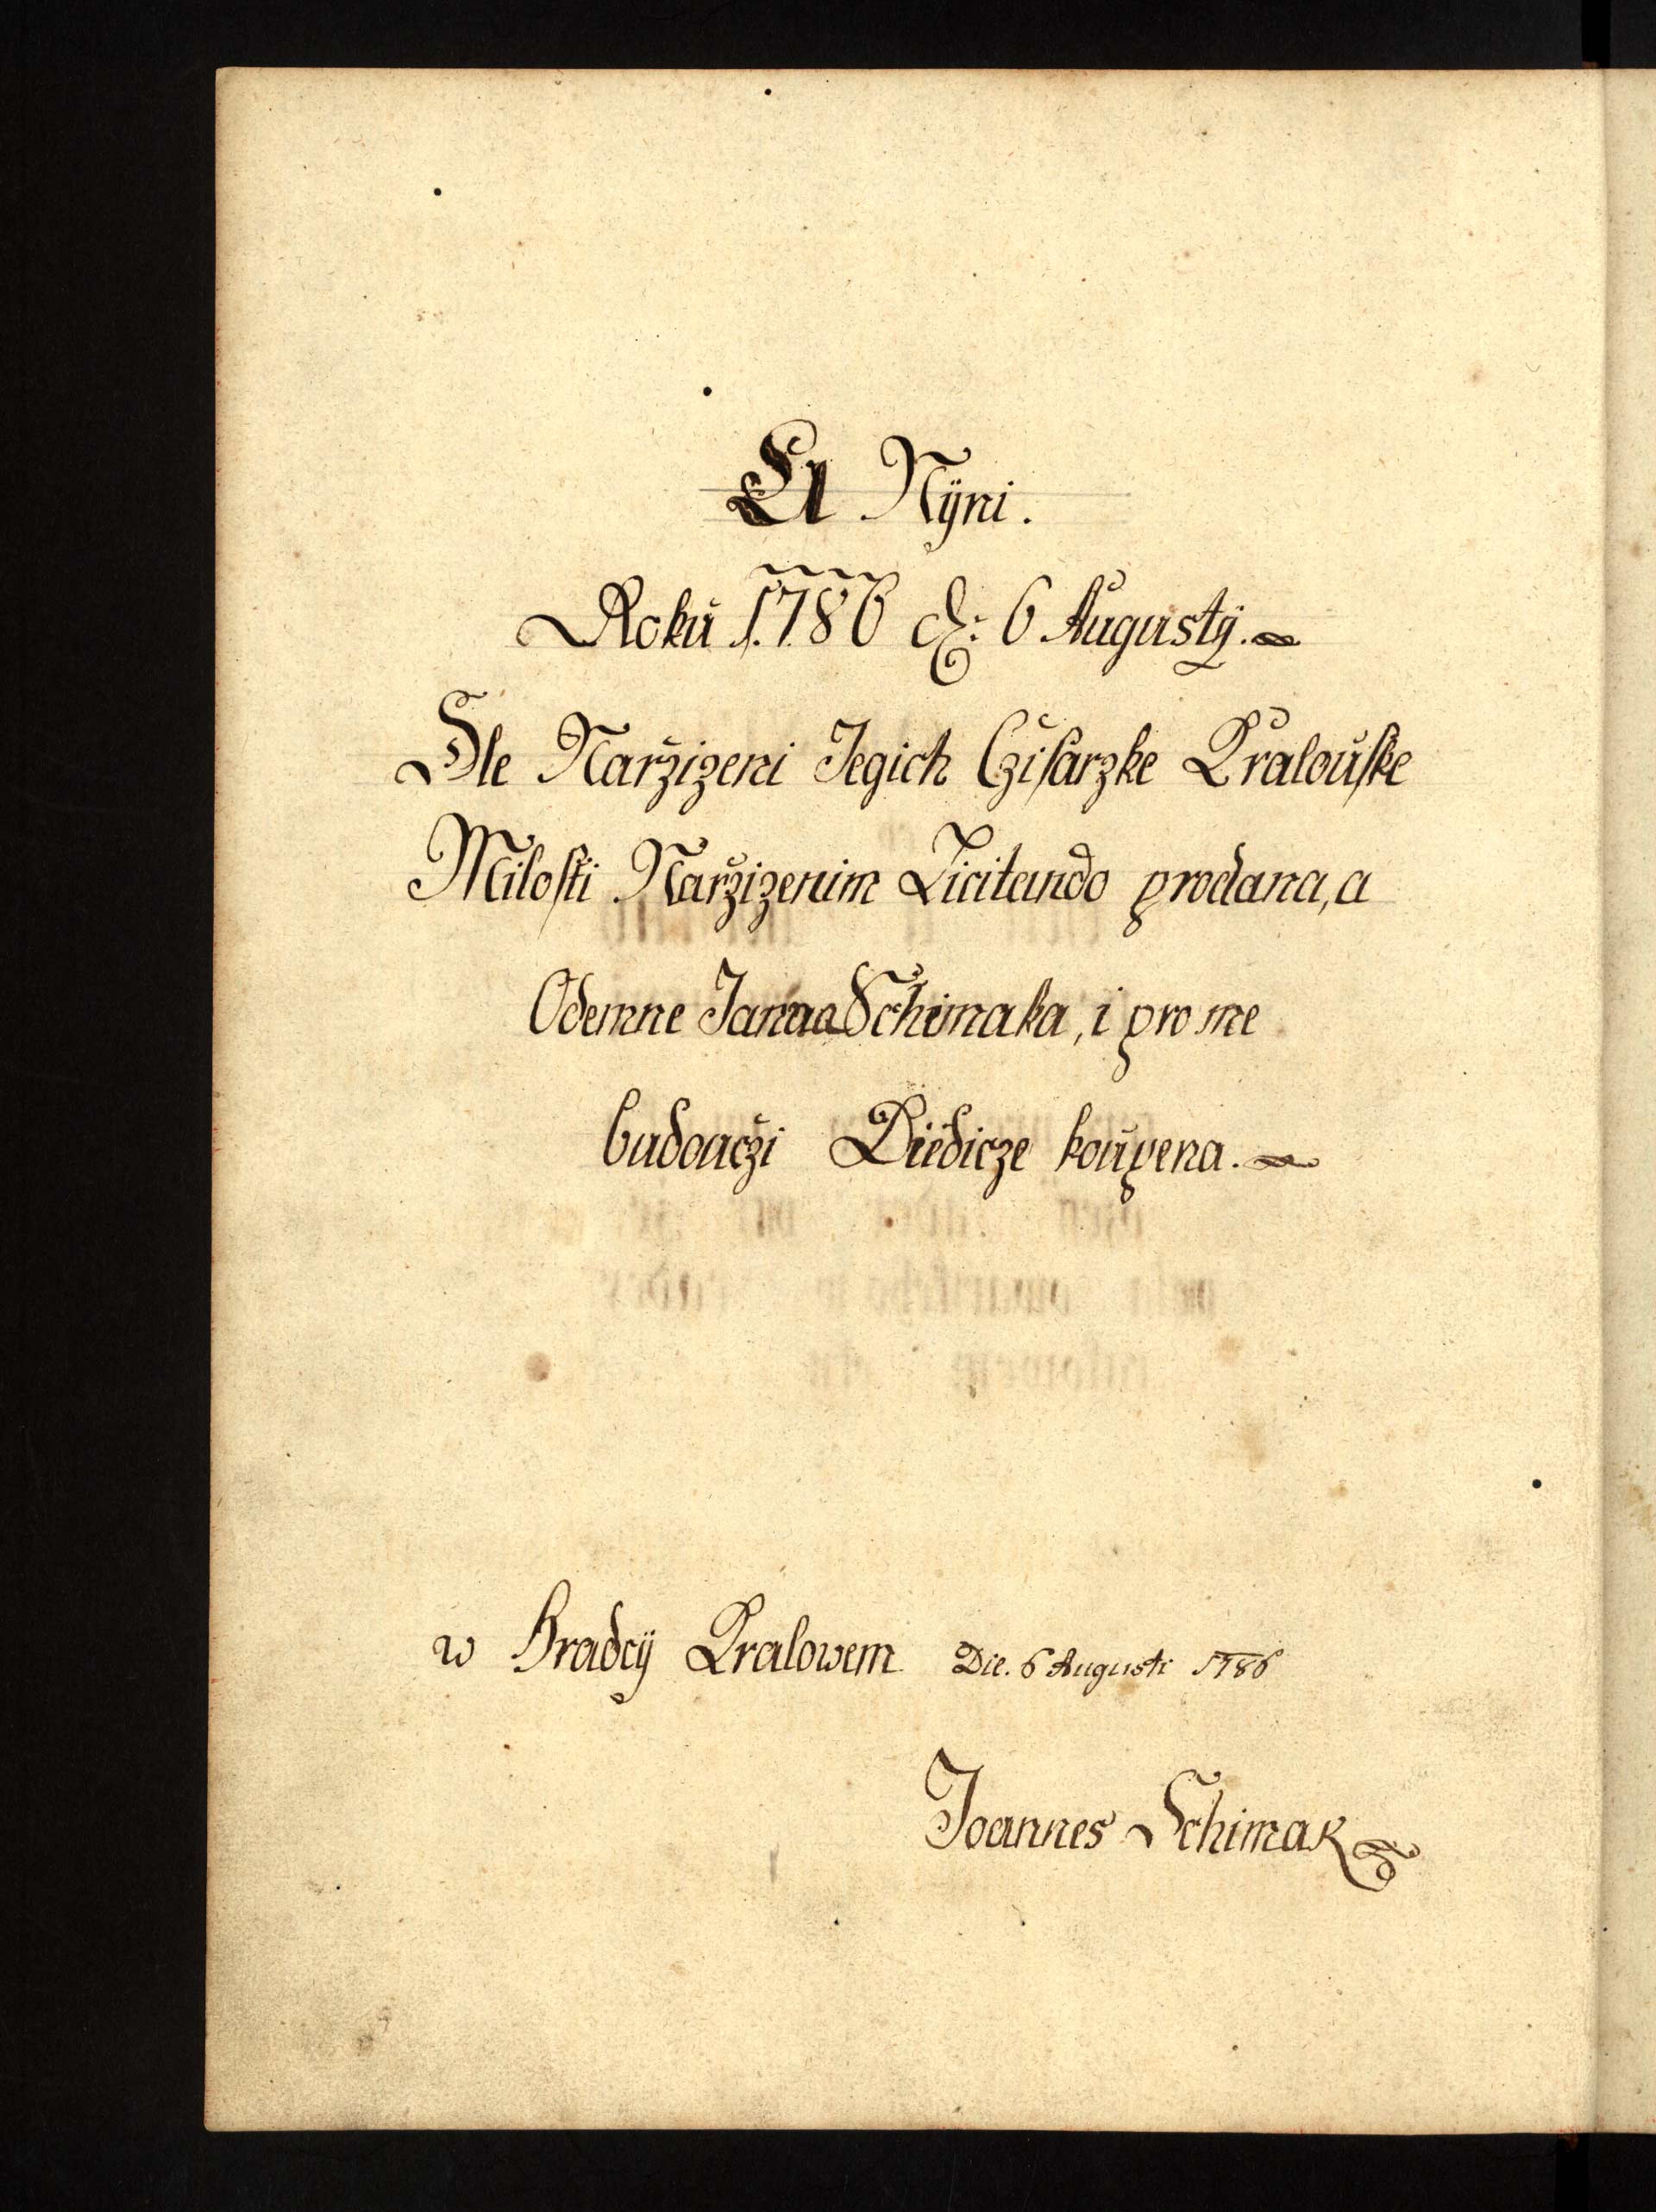 A Nÿni.
Roku 1786 d: 6 Augustÿ.
Dle Narzizeni Jegich Czisarzke Kralouske
Milosti Narzizenim Licitando prodana, a
Odemne Jana Schimaka, i pro me
budouczi Diedicze koupena.
w Hradcÿ Kralowem Die. 6 Augusti 1786
Joannes Schimak